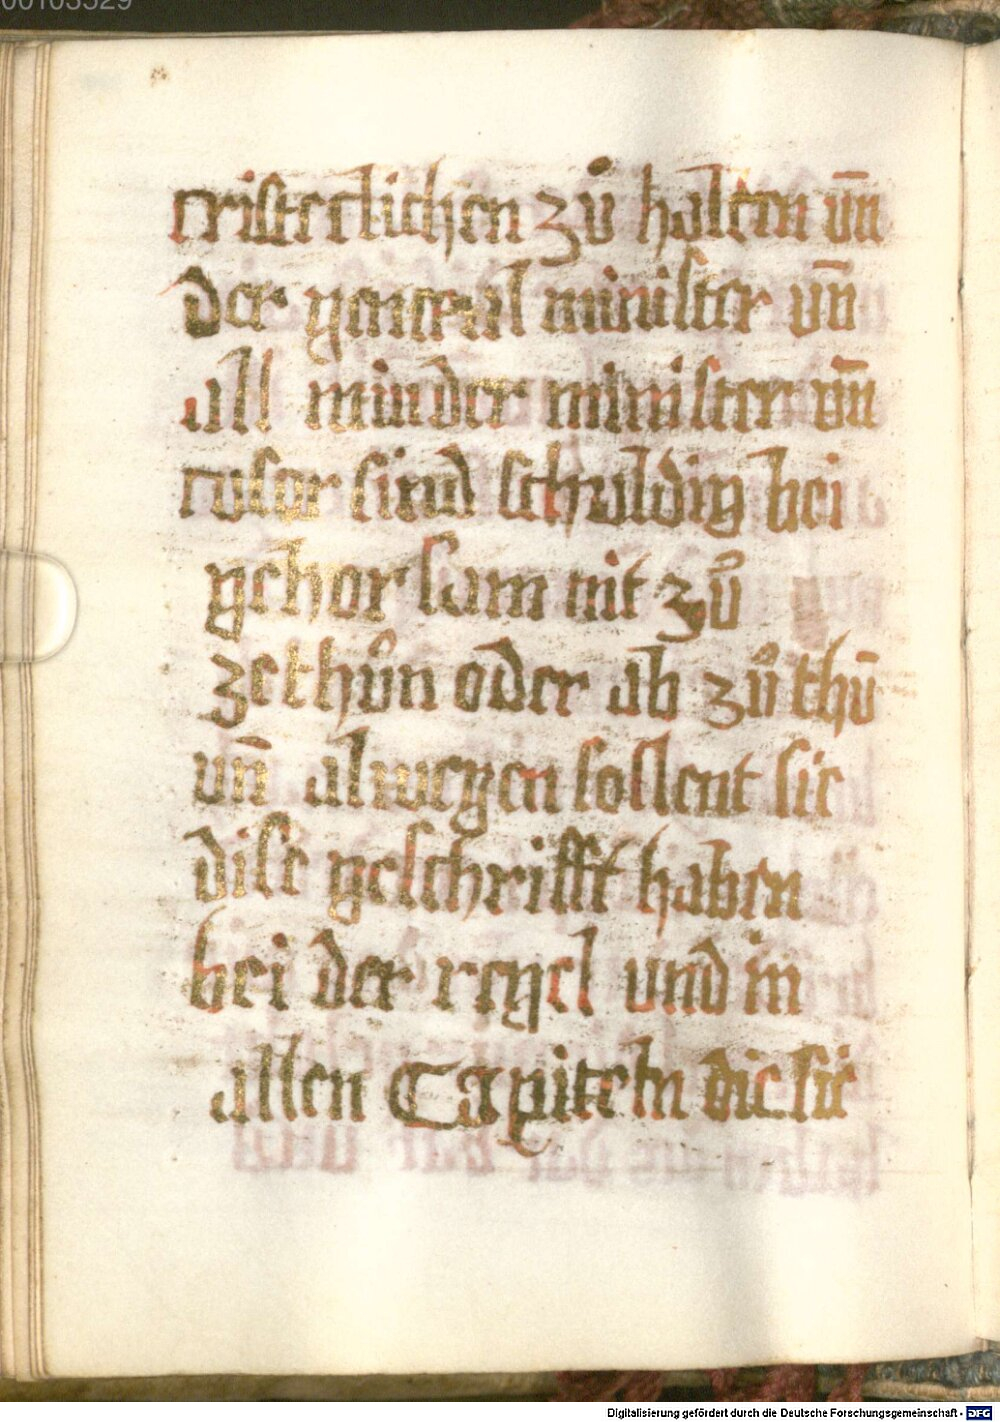 00103529
cristerlichen zů halten un̄
der general minister un̄
all minder minister un̄
cusor sind schuldig bei
gehorsam nit zů
zethůn oder ab zů thū
un̄ alwegen sollent sie
dise geschrifft haben
bei der regel und in
allen Capiteln die sie
Digitalisierung gefördert durch die Deutsche Forschungsgemeinschaft - DFG